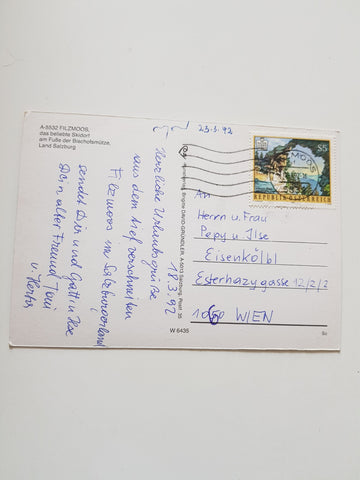 A-5532 FILZMOOS,
das beliebte Skidorf
am Fuße der Bischofsmütze,
Land Salzburg
23.3.92
18.3.92
Herzliche Urlaubsgrüße
aus dem tief verschneiten
Filzmoos im Salzburgerland
sendet Dir und Gatt in Ilse
Dein alter Freund Toni
u. Herta
DAVID-GRÜNDLER, A-5013 Salzburg, Postf. 35
S5
REPUBLIK ÖSTERREICH
An
Herrn u. Frau
Pepy u Ilse
Eisenkölbl
Esterhazygasse 12/2/2
1060 WIEN
W 6435